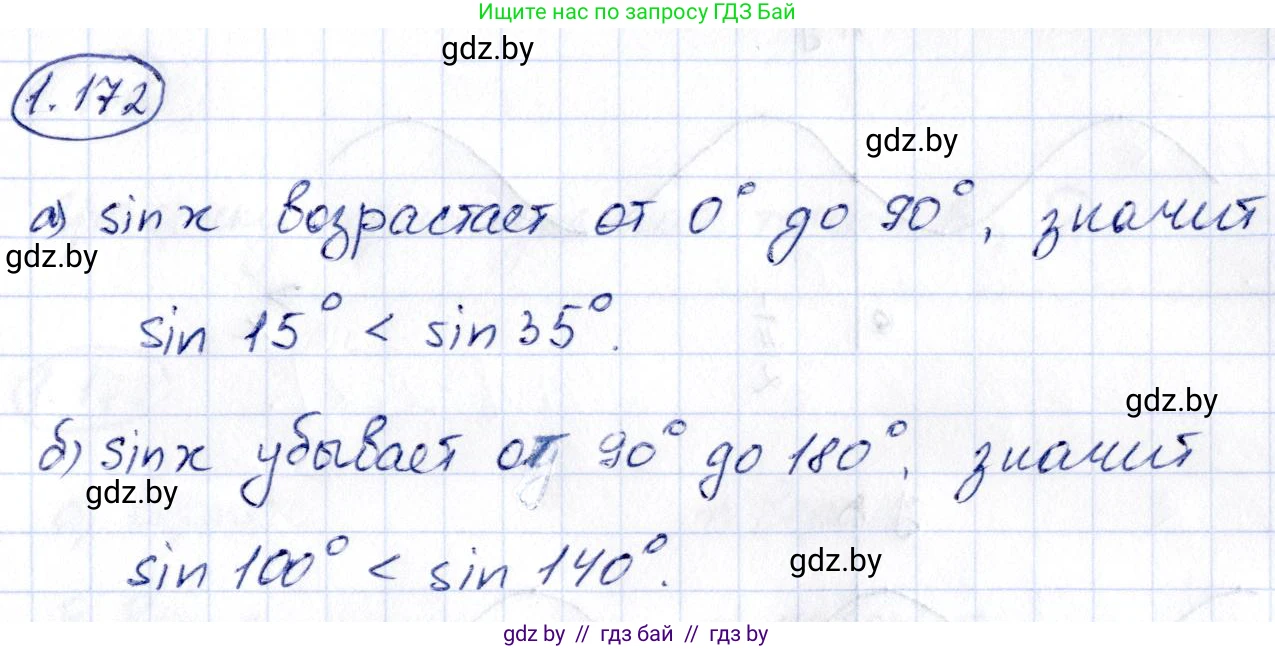 Ищите нас по запросу ГДЗ Бай
gdz.by
1.172
gdz.by
а) sin x возрастает от 0° до 90°, значит
gdz.by
sin 15° < sin 35°.
gdz.by
б) sin x убывает от 90° до 180°, значит
gdz.by
sin 100° < sin 140°.
gdz.by
gdz by // гдз бай // гдз by